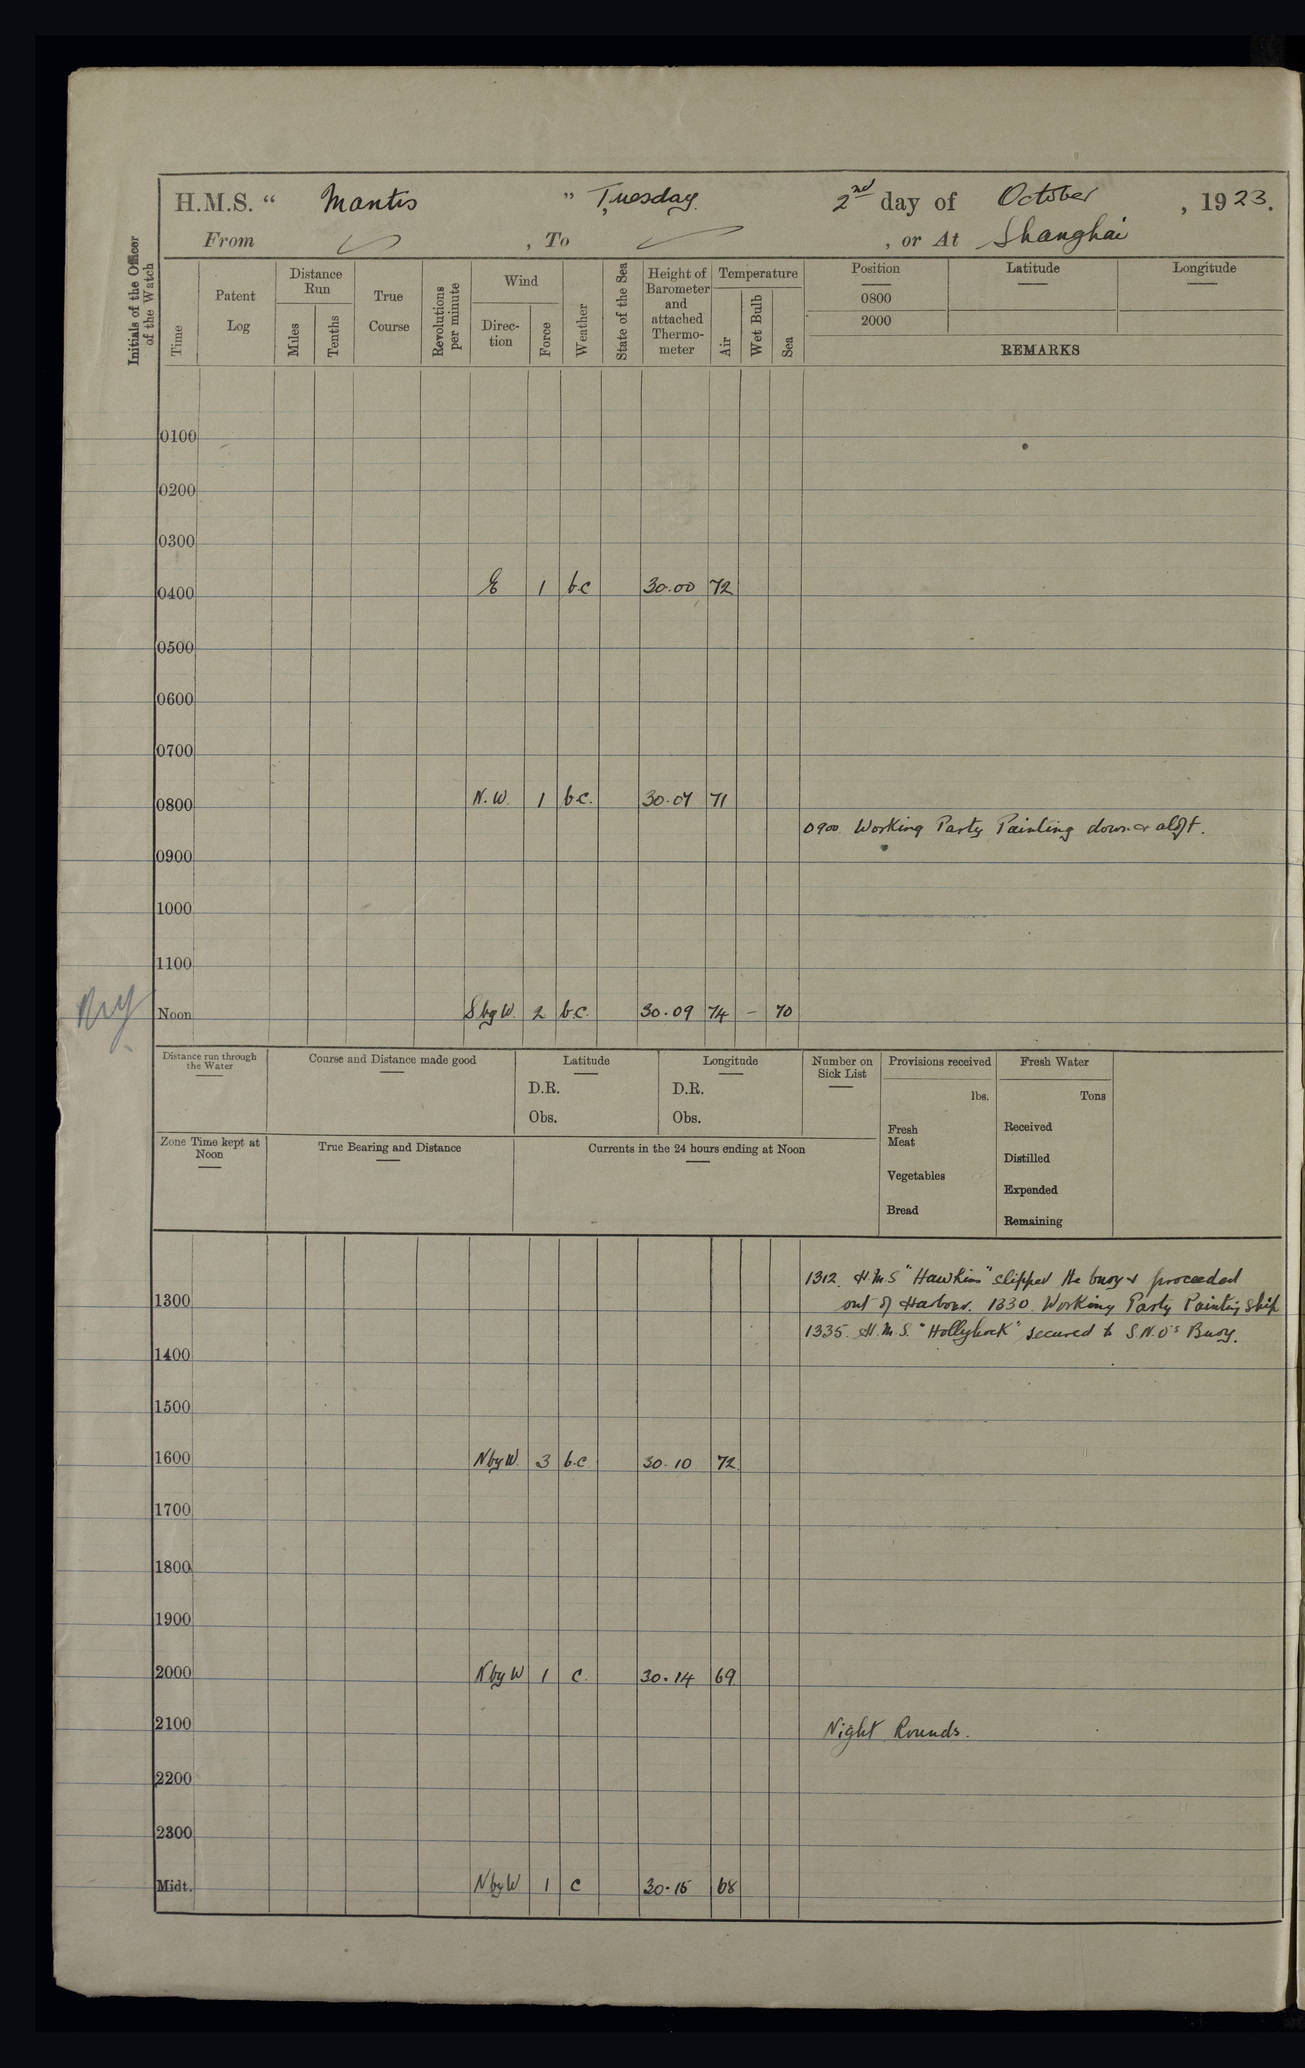 H.M.S. “ Mantis ” Tuesday. 2nd day of October , 1923.
From , To , or At Shanghai
Initials of the Officer of the Watch
Time
Patent Log
Distance Run
Miles
Tenths
True Course
Revolutions per minute
Wind
Direc-tion
Force
Weather
State of the Sea
Height of Barometer and attached Thermo-meter
Temperature
Air
Wet Bulb
Sea
Position Latitude Longitude
0800
2000
REMARKS
0100
0200
0300
0400 E 1 b.c 30.00 72
0500
0600
0700
0800 N.W. 1 b.c. 30.07 71
0900. Working Party Painting down & aloft.
0900
1000
1100
Noon S by W. 2 b.c. 30.09 74 – 70
Distance run through the Water
Course and Distance made good
Latitude
D.R.
Obs.
Longitude
D.R.
Obs.
Number on Sick List
Provisions received
lbs.
Fresh Meat
Vegetables
Bread
Fresh Water
Tons
Received
Distilled
Expended
Remaining
Zone Time kept at Noon
True Bearing and Distance
Currents in the 24 hours ending at Noon
1312. H.M.S "Hawkins" slipped the buoy & proceeded
1300 out of Harbour. 1330. Working Party Painting ship
1335. H.M.S. "Hollyhock" secured to S.N.O's Buoy.
1400
1500
1600 N by W. 3 b.c 30.10 72
1700
1800
1900
2000 N by W 1 c. 30.14 69
2100 Night Rounds.
2200
2300
Midt. N by W 1 c 30.15 68